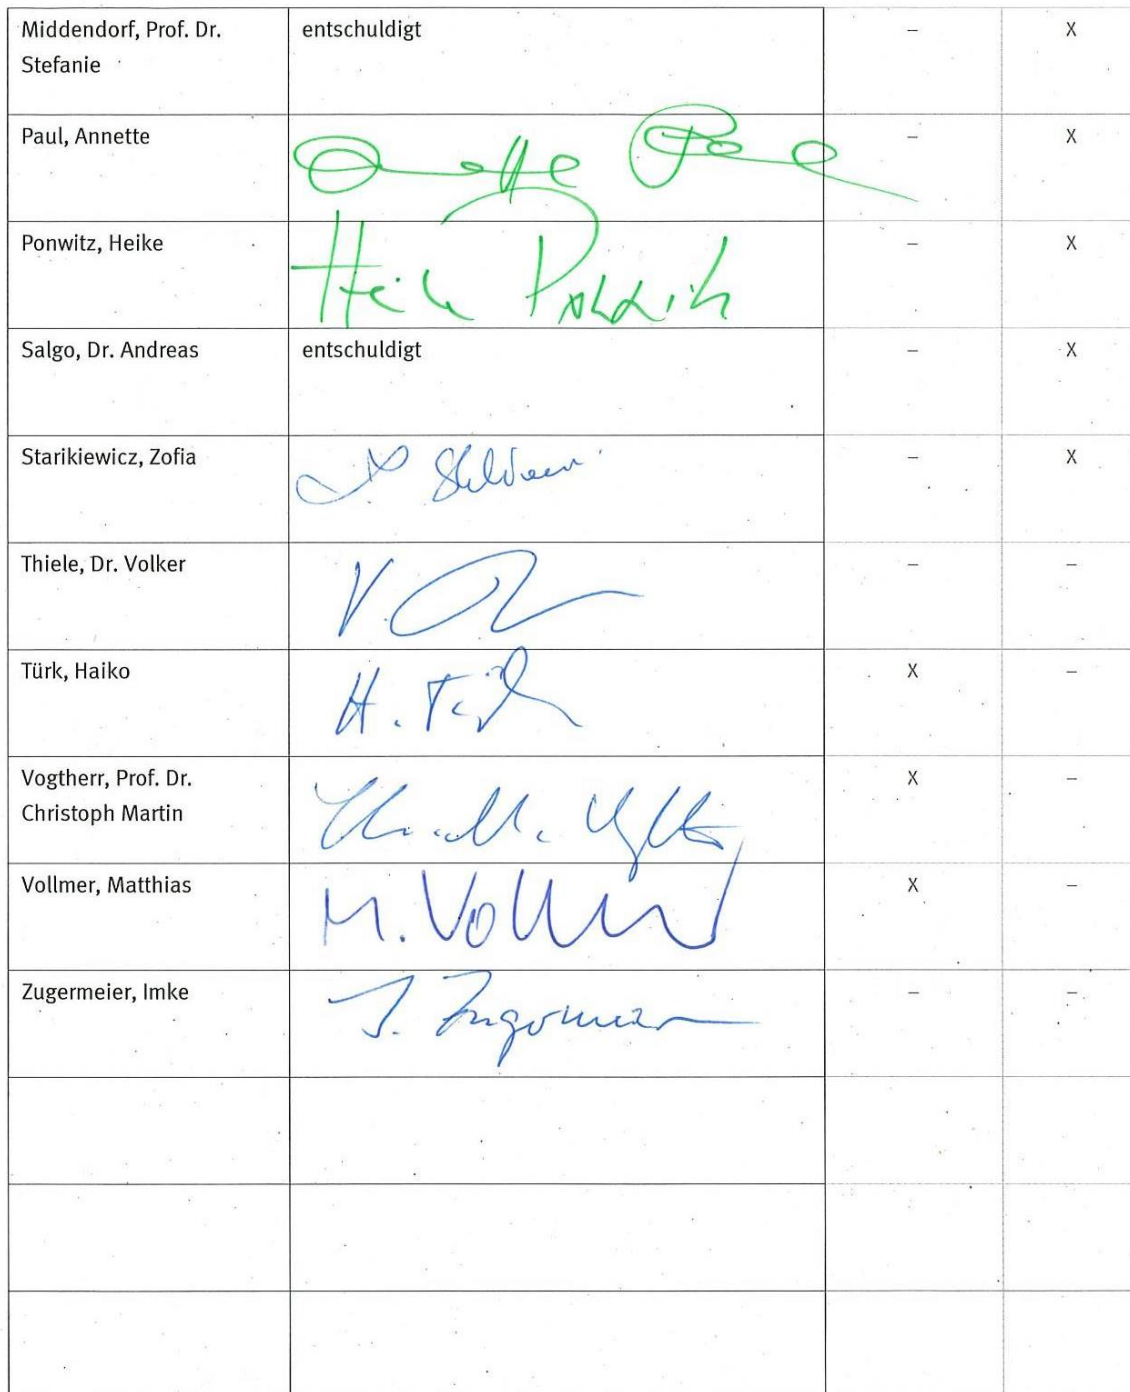 Middendorf, Prof. Dr. entschuldigt – X
Stefanie
Paul, Annette Annette Paul – X
Ponwitz, Heike Heike Ponwitz – X
Salgo, Dr. Andreas entschuldigt – X
Starikiewicz, Zofia – X
Thiele, Dr. Volker – –
Türk, Haiko H. Türk X –
Vogtherr, Prof. Dr. X –
Christoph Martin
Vollmer, Matthias M. Vollmer X –
Zugermeier, Imke I. Zugermeier – –